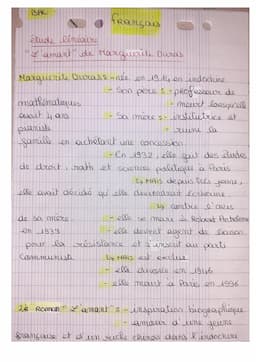 BAC
Français
étude linéaire
"L'amant" de Marguerite Duras
Marguerite Durass - née en 1914 en indochine
- Son père : - professeur de
mathématiques - meurt lorsqu'elle
avait 4 ans
- Sa mère : - institutrice et
pianiste - ruine la
famille en achetant une concession.
- En 1932, elle fait des études
de droit, math et science politique à Paris
↳ MAIS depuis ses ans,
elle avait décidé qu'elle deviendrait écrivaine
↳ contre l'avis
de sa mère. - elle se marie à Robert Antelme
en 1933 - elle devient agent de liaison
pour la résistance et s'inscrit au parti
Communiste ↳ MAIS est exclue
- elle divorce en 1946
- elle meurt à Paris en 1996
Le Roman "L'amant" : - inspiration biographique
- amour d'une jeune
française et d'un riche chinois dans l'indochine